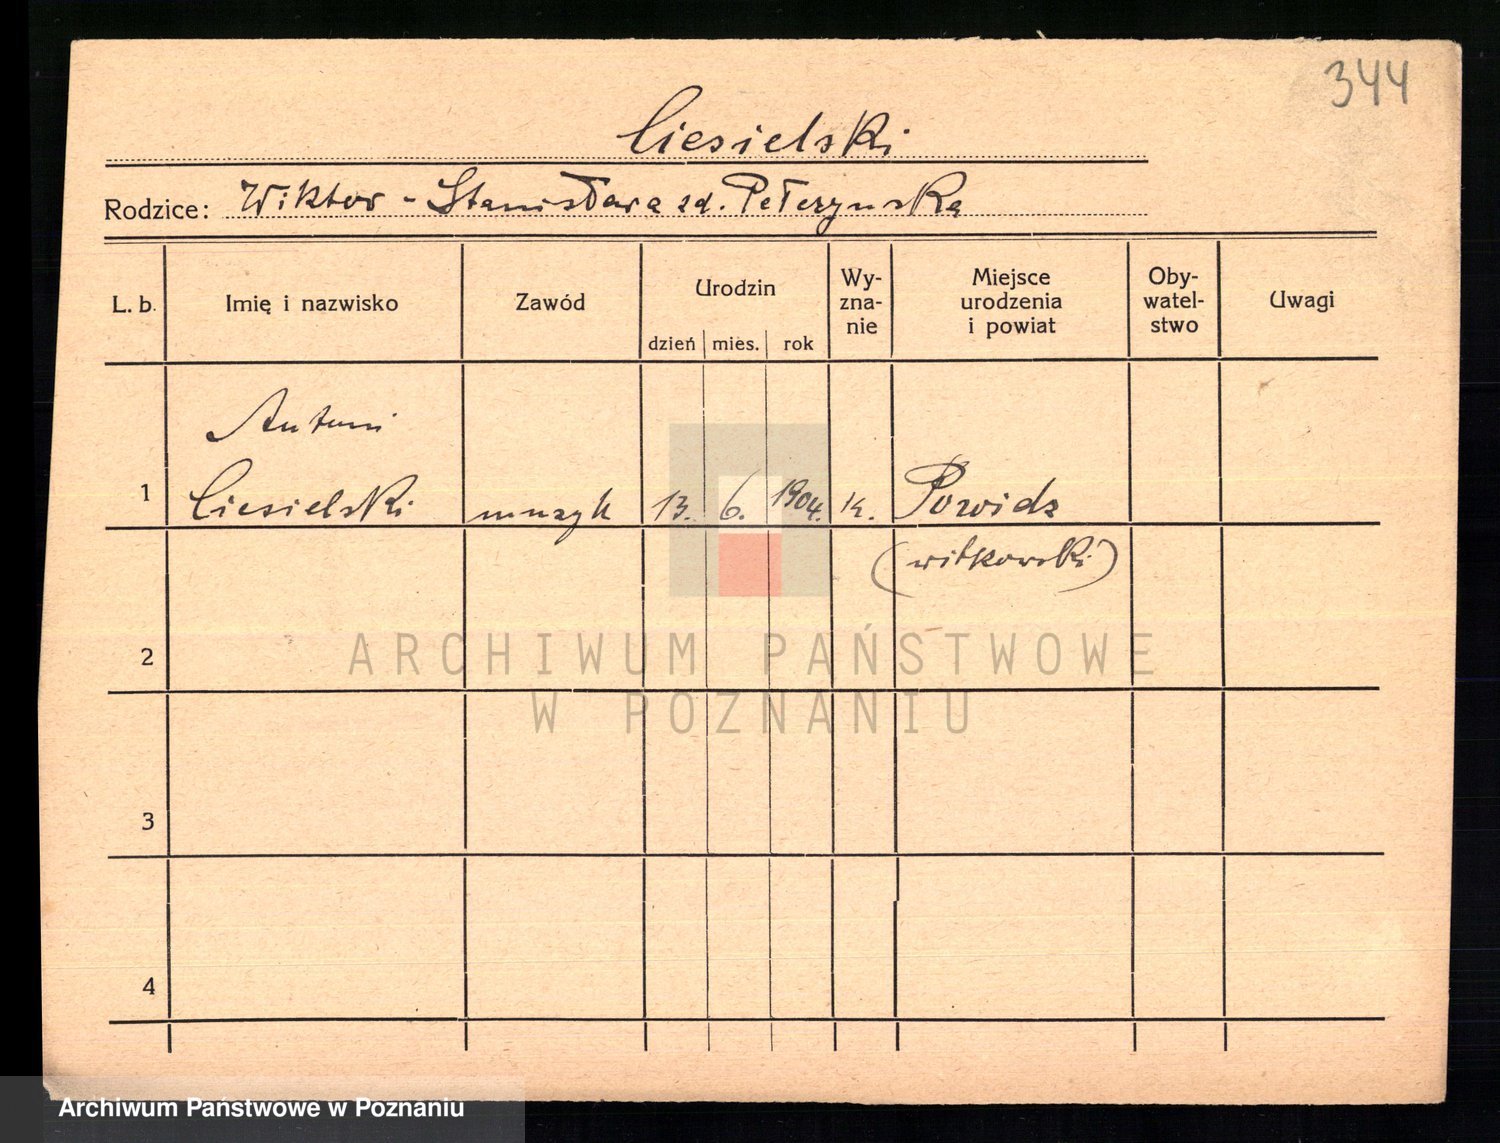 344
Ciesielski
Rodzice: Wiktor - Stanisława zd. Pełczyńska
L. b. Imię i nazwisko Zawód Urodzin Wy-
zna-
nie Miejsce
urodzenia
i powiat Oby-
watel-
stwo Uwagi
dzień mies. rok
Antoni
1 Ciesielski muzyk 13. 6. 1904. k. Powidz
(witkowski)
2
ARCHIWUM PAŃSTWOWE
W POZNANIU
3
4
Archiwum Państwowe w Poznaniu